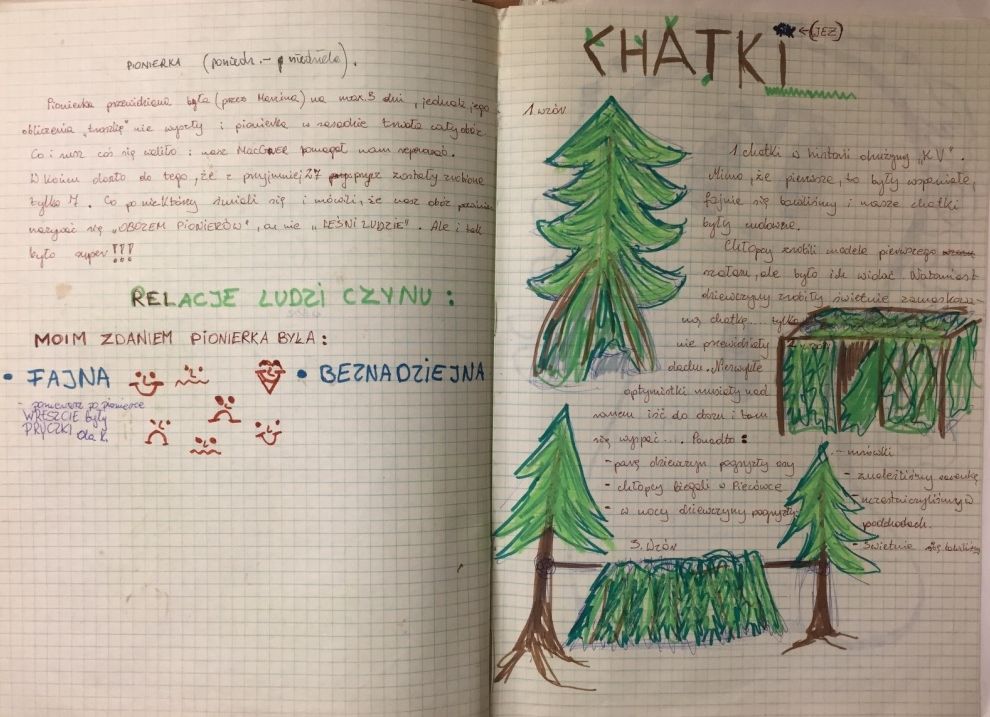 PIONIERKA (poniedz. - niedziela).
Pionierka przewidziana była (przez Marcina) na max. 3 dni, jednak jego
obliczenia "troszkę" nie wyszły i pionierka w zasadzie trwała cały obóz.
Co i rusz coś się waliło i nasz MacGwer pomagał nam reperować.
W końcu doszło do tego, że z przyjmniej 27 prycz zostały zrobione
tylko 7. Co po niektórzy śmiali się i mówili, że nasz obóz powinien
nazywać się "OBOZEM PIONIERÓW", a nie "LEŚNI LUDZIE". Ale i tak
było super!!!
RELACJE LUDZI CZYNU:
MOIM ZDANIEM PIONIERKA BYŁA:
• FAJNA
• BEZNADZIEJNA
- ponieważ po pionierce
WRESZCIE były
PRYCZKI dla K.
CHATKI ←(JEŻ)
1. wzór
1 chatki w historii drużyny "KV".
Mimo, że pierwsze, to były wspaniałe,
fajnie się bawiliśmy i nasze chatki
były cudowne.
Chłopcy zrobili modele pierwszego
szałasu, ale było ich widać. Natomiast
dziewczyny zrobiły świetnie zamaskowa-
ną chatkę... tylko
nie przewidziały 2. wzór
dachu. Niezwykłe
optymistki musiały nad
ranem iść do domu i tam
się wyspać.... Ponadto:
- parę dziewczyn pogryzły osy
- chłopcy biegali o Piecówce
- w nocy dziewczyny pogryzły
- mrówki
- znaleźliśmy
- uczestniczyliśmy w
podchodach.
- Świetnie się bawiliśmy
3. wzór